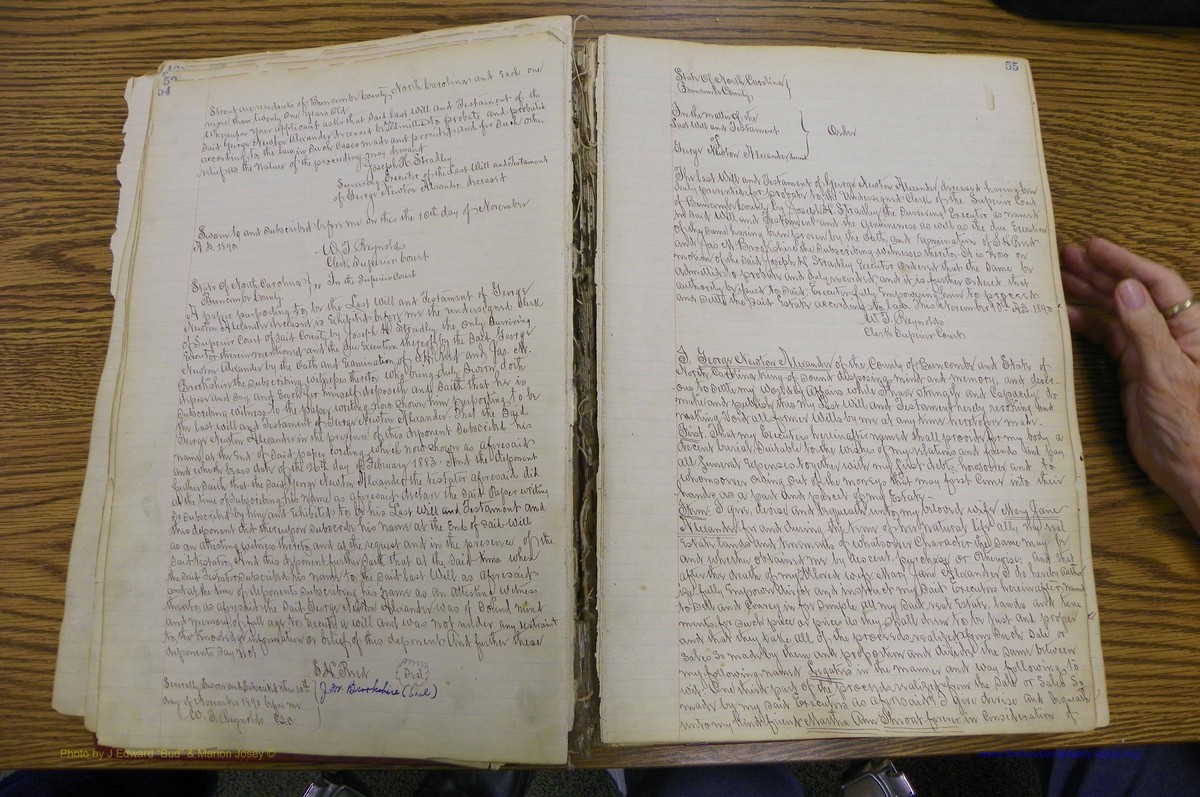 54
Stroup are residents of Buncombe County, North Carolina and each one
more than twenty one years old.
Whereupon your applicant asks that said Last Will and Testament of the
said George Newton Alexander deceased be admitted to probate and probated
according to the law in such cases made and provided and for such other
relief as the nature of the proceeding may demand
Joseph H Stradley
Surviving Executor of the Last Will and Testament
of George Newton Alexander, deceased
Sworn to and subscribed before me on this the 10th day of November
A.D. 1890
W. T. Reynolds
Clerk Superior Court
State of North Carolina
Buncombe County
In the Superior Court
A paper purporting to be the Last Will and Testament of George
Newton Alexander deceased is exhibited before me the undersigned Clerk
of Superior Court of said County by Joseph H Stradley the only Surviving
Executor therein mentioned and the due execution thereof by the said George
Newton Alexander by the Oath and Examination of and Jas. M.
Brookshire the subscribing witnesses thereto who being duly sworn doth
depose and say, and each for himself deposeth and saith that he is
subscribing witness to the paper writing now shown him purporting to be
the last will and Testament of George Newton Alexander. That the said
George Newton Alexander in the presence of this deponent subscribed his
name at the End of said paper writing which now shown as aforesaid
and which bears date of the day of February 1883. And the deponent
further saith that the said George Newton Alexander the testator aforesaid did
at the time of subscribing his name as aforesaid declare the said Paper writing
so subscribed by him and exhibited to be his Last Will and Testament and
this deponent did thereupon subscribe his name at the End of said Will
as an attesting witness thereto and at the request and in the presence of the
said testator. And this deponent further saith that at the said time when
the said testator subscribed his name to the said last Will as aforesaid
and at the time of deponents subscribing his name as an Attesting witness
thereto as aforesaid the said George Newton Alexander was of Sound mind
and memory of full age to execute a will and was not under any restraint
to the knowledge information or belief of this deponent And further these
deponents say not
(Seal)
J M Brookshire (Seal)
Severally Sworn and Subscribed this 10th
day of November 1890 before me
W. T. Reynolds CSC
55
State of North Carolina
Buncombe County
In the matter of the
Last Will and Testament
of
George Newton Alexander
Order
The Last Will and Testament of George Newton Alexander deceased having been
duly presented for probate to the undersigned Clerk of the Superior Court
of Buncombe County by Joseph H Stradley the Surviving Executor as named
in said Will and Testament and the genuineness as well as the due execution
of the same having been proven by the Oath and examination of
and Jas M Brookshire the subscribing witnesses thereto. It is now on
motion of the said Joseph H Stradley Executor ordered that the same be
admitted to probate and duly recorded and it is further ordered that
authority be issued to said Executor fully empowering him to proceed
and settle the said Estate according to law. This November 10th A.D. 1890
W. T. Reynolds
Clerk Superior Court
I, George Newton Alexander of the County of Buncombe and State of
North Carolina being of sound disposing mind and memory, and desir-
ous to settle my worldly affairs while I have strength and Capacity do
make and publish this my Last Will and Testament hereby revoking and
making void all former Wills by me at any time heretofore made.
First. That my Executors hereinafter named shall provide for my body a
decent burial suitable to the wishes of my relations and friends and pay
all Funeral Expenses together with my just debts, however and to
whomsoever owing out of the moneys that may first come into their
hands as a part and parcel of my Estate.
Item. I give, devise and bequeath unto my beloved wife Mary Jane
Alexander for and during the term of her natural life all my real
Estate, lands and tenements of whatsoever character the same may be
and whether obtained me by descent, purchase or otherwise; and that
after the death of my beloved wife Mary Jane Alexander I do hereby autho
rize fully Empower direct and instruct my said Executors hereinafter named
to sell and convey in fee simple all my said real Estate, lands and tene
ments for such price or prices as they shall deem to be just and proper
and that they take all of the proceeds realized from such sale or
sales so made by them and proportion and divide the same between
my following named Legatees in the manner and way following to
wit. One third part of the proceeds realized from the sale or sales so
made by my said Executors as aforesaid I give devise and bequeath
unto my kind friend Martha Ann in Consideration of
Photo by J Edward "Bud" & Marion Josey ©